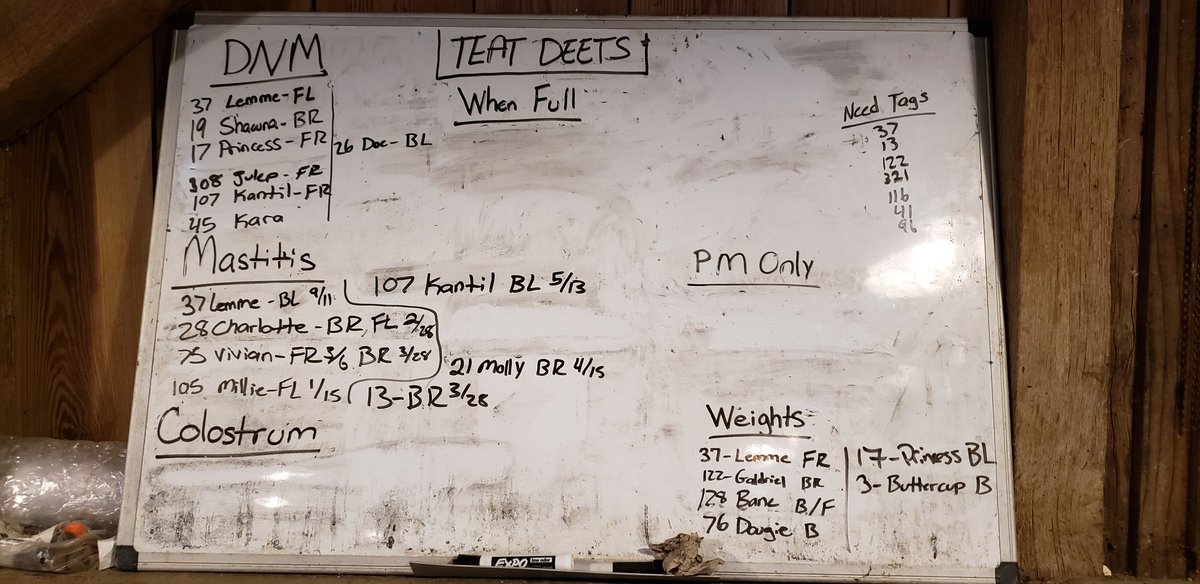 DNM
37 Lemme-FL
19 Shawna-BR
17 Princess-FR
26 Doc-BL
308 Julep-FR
107 Kantil-FR
45 Kara
TEAT DEETS
When Full
Need Tags
37
13
122
321
116
41
96
Mastitis
37 Lemme-BL 9/11
28 Charlotte-BR, FL 2/28
75 Vivian-FR 3/6 BR 3/28
105 Millie-FL 1/15
107 Kantil BL 5/13
21 Molly BR 4/15
13-BR 3/28
PM Only
Colostrum
Weights
37-Lemme FR
122-Galdriel BR
128 Bane B/F
76 Dougie B
17-Princess BL
3-Buttercup B
EXPO